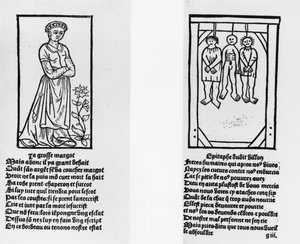 La grosse margot
Mais adonc il y a grant deshait
Quãt sãs argẽt sẽ va coucher margot
Veoir ne la puis mõ cueur a mort la hait
Sa robe prens chaperon et surcot
Si luy iure quil tiendra pour lescot
Par les coustez si se prent lantecrist
Crie et iure par la mort iesucrist
Que nõ fera lors iẽpongne ung esclat
Dessus sõ nez luy en fais ung escript
En ce bordeau ou tenons nostre estat
Epitaphe dudit villon
Freres humains qui apres no9 viuez
Nayez les cueurs contre no9 endurcis
Car se pitie de no9 pouurez auez
Dieu en aura plustost de vous mercis
Vous nous voiez cy ataches cinq six
Quãt de la char q̃ trop auõs nourrie
Elleest pieca deuouree et pourrie
et no9 les os deuenõs cẽdres et pouldre
De nostre mal personne ne sen rie
Mais priez dieu que tous nous vueil
le absouldre
g iii